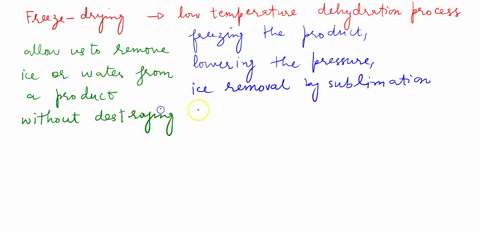 Freeze-drying → low temperature dehydration process
freezing the product,
lowering the pressure,
ice removal by sublimation
allow us to remove
ice or water from
a product
without destroying